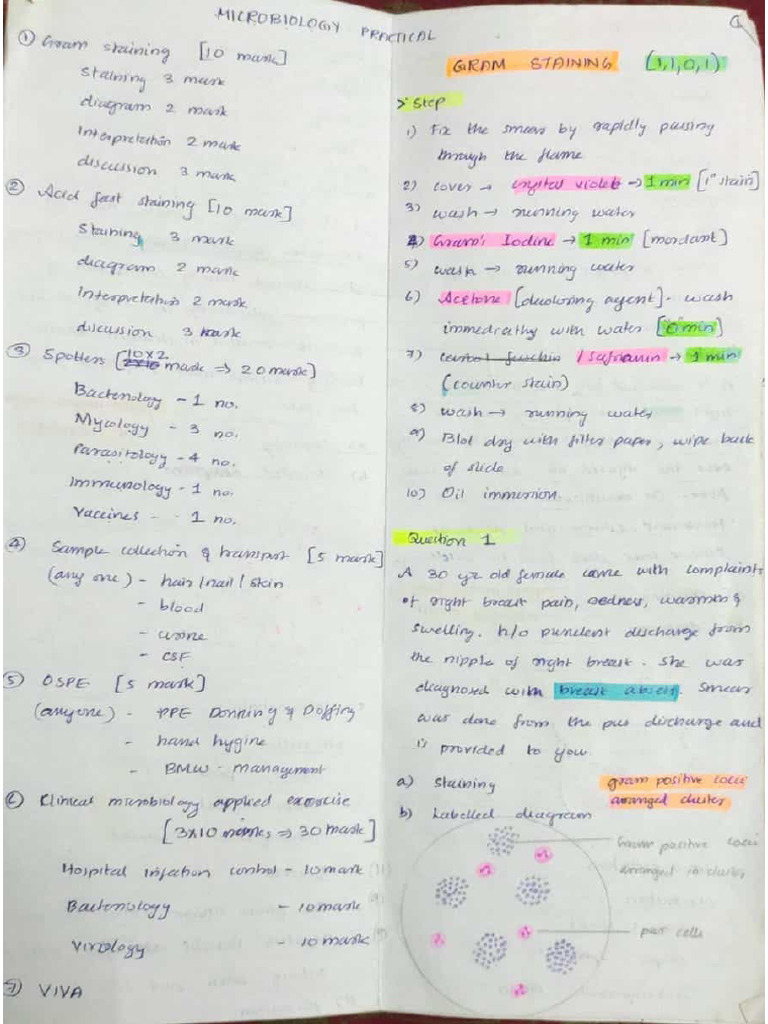 MICROBIOLOGY PRACTICAL
① Gram staining [10 mark]
Staining 3 mark
diagram 2 mark
Interpretation 2 mark
discussion 3 mark
② Acid fast staining [10 mark]
Staining 3 mark
diagram 2 mark
Interpretation 2 mark
discussion 3 mark
③ Spotters [10×2 mark ⇒ 20 mark]
Bacteriology - 1 no.
Mycology - 3 no.
Parasitology - 4 no.
Immunology - 1 no.
Vaccines - - 1 no.
④ Sample collection & transport [5 mark]
(any one) - hair / nail / skin
- blood
- urine
- CSF
⑤ OSPE [5 mark]
(anyone) - PPE Donning & Doffing
- hand hygine
- BMW - management
⑥ Clinical microbiology applied exercise
[3×10 marks ⇒ 30 mark]
Hospital infection control - 10 mark
Bacteriology - 10 mark
Virology - 10 mark
⑦ VIVA
①
GRAM STAINING (1,1,0,1)
> Step
1) Fix the smear by rapidly passing
through the flame
2) cover → crystal violet → 1 min [1° stain]
3) wash → running water
4) Gram's Iodine → 1 min [mordant]
5) wash → running water
6) Acetone [decoloring agent] - wash
immediately with water ["0" min]
7) carbol fuschin / safranin → 1 min
(counter stain)
8) wash → running water
9) Blot dry with filter paper, wipe back
of slide
10) Oil immersion
Question 1
A 30 yr old female came with complaints
of right breast pain, redness, warmth &
swelling. h/o purulent discharge from
the nipple of right breast. She was
diagnosed with breast abscess. Smear
was done from the pus discharge and
is provided to you
a) Staining
gram positive cocci
arranged cluster
b) Labelled diagram
Gram positive cocci
arranged in cluster
pus cells